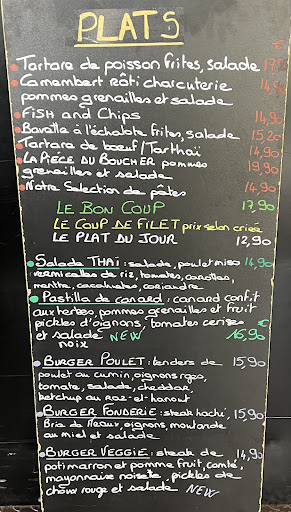 PLATS
€
Tartare de poisson frites, salade
Camembert Rôti charcuterie
pommes grenailles et salade
FISH and Chips 14,90
Bavette à l'échalote frites, salade 15,20
Tartare de bœuf/Tarthaï 14,90
LA PIECE DU BOUCHER pommes 19,90
grenailles et salade
Notre Selection de pâtes 14,90
LE BON COUP 17,90
LE COUP DE FILET prix selon criée
LE PLAT DU JOUR 12,90
Salade THAÏ: salade, poulet mi 14,90
vermicelles de riz, tomates, carottes,
menthe, cacahuètes, coriandre
Pastilla de canard: canard confit
aux herbes, pommes grenailles et fruit
pickles d'oignons, tomates cerises €
et salade NEW 16,90
noix
BURGER POULET: tenders de 15,90
poulet au cumin, oignons rges,
tomate, salade, cheddar,
ketchup au Raz-el-hanout
BURGER FONDERIE: steak haché, 15,90
Brie de Meaux, oignons, moutarde
au miel et salade
BURGER VEGGIE: steak de 14,90
potimarron et pomme fruit, comté,
mayonnaise noisette, pickles de
choux rouge et salade NEW